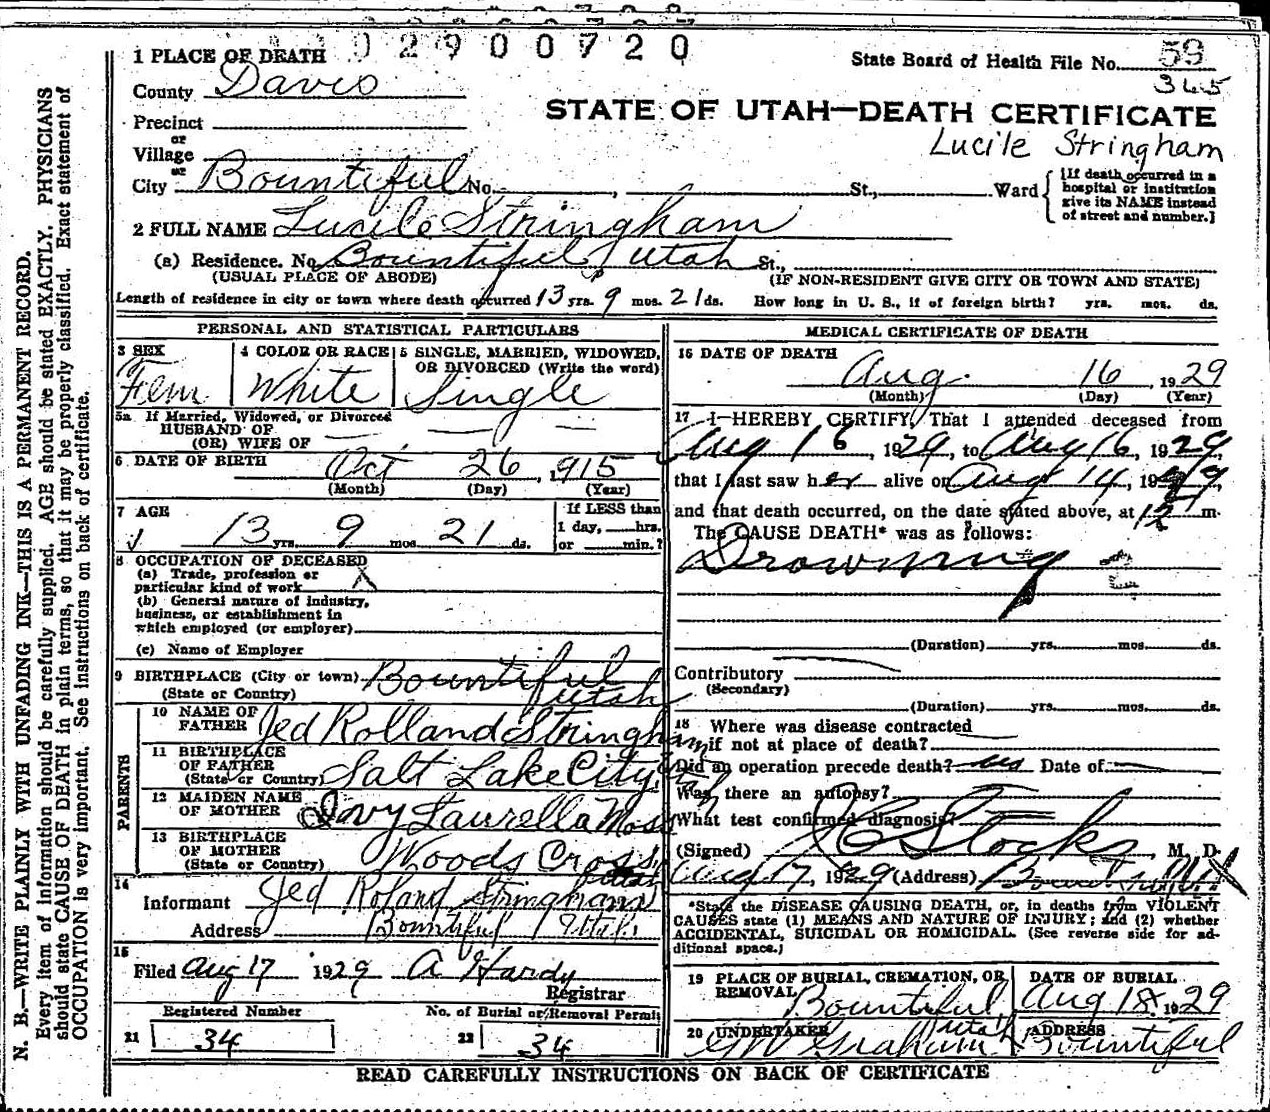 02900720
1 PLACE OF DEATH
State Board of Health File No. 59
365
County Davis
STATE OF UTAH—DEATH CERTIFICATE
Precinct
or
Village
Lucile Stringham
or
City Bountiful No. , St., Ward
[If death occurred in a
hospital or institution
give its NAME instead
of street and number.]
2 FULL NAME Lucile Stringham
(a) Residence. No. Bountiful Utah St.,
(USUAL PLACE OF ABODE) (IF NON-RESIDENT GIVE CITY OR TOWN AND STATE)
Length of residence in city or town where death occurred 13 yrs. 9 mos. 21 ds. How long in U. S., if of foreign birth? yrs. mos. ds.
PERSONAL AND STATISTICAL PARTICULARS
3 SEX
Fem
4 COLOR OR RACE
White
5 SINGLE, MARRIED, WIDOWED,
OR DIVORCED (Write the word)
Single
5a If Married, Widowed, or Divorced
HUSBAND OF
(OR) WIFE OF
6 DATE OF BIRTH Oct 26, 1915
(Month) (Day) (Year)
7 AGE
13 yrs. 9 mos. 21 ds.
If LESS than
1 day, hrs.
or min.?
8 OCCUPATION OF DECEASED
(a) Trade, profession or
particular kind of work X
(b) General nature of industry,
business, or establishment in
which employed (or employer)
(c) Name of Employer
9 BIRTHPLACE (City or town) Bountiful
(State or Country) Utah
PARENTS
10 NAME OF
FATHER Jed Rolland Stringham
11 BIRTHPLACE
OF FATHER
(State or Country) Salt Lake City Utah
12 MAIDEN NAME
OF MOTHER Ivy Laurella Moss
13 BIRTHPLACE
OF MOTHER
(State or Country) Woods Cross
Utah
14
Informant Jed Roland Stringham
Address Bountiful Utah
15
Filed Aug 17 1929 A Hardy
Registrar
Registered Number No. of Burial or Removal Permit
21 34 22 34
MEDICAL CERTIFICATE OF DEATH
16 DATE OF DEATH
Aug. 16, 1929
(Month) (Day) (Year)
17 I HEREBY CERTIFY, That I attended deceased from
Aug 16, 1929, to Aug 16, 1929,
that I last saw her alive on Aug 14, 1929,
and that death occurred, on the date stated above, at 12 m.
The CAUSE DEATH* was as follows:
Drowning
(Duration) yrs. mos. ds.
Contributory
(Secondary)
(Duration) yrs. mos. ds.
18 Where was disease contracted
if not at place of death?
Did an operation precede death? no Date of
Was there an autopsy?
What test confirmed diagnosis?
(Signed) J C Stocks, M. D.
Aug 17, 1929 (Address)
*State the DISEASE CAUSING DEATH, or, in deaths from VIOLENT
CAUSES state (1) MEANS AND NATURE OF INJURY; and (2) whether
ACCIDENTAL, SUICIDAL OR HOMICIDAL. (See reverse side for ad-
ditional space.)
19 PLACE OF BURIAL, CREMATION, OR
REMOVAL
Bountiful
Utah
DATE OF BURIAL
Aug 18 1929
20 UNDERTAKER
GW Graham
ADDRESS
Bountiful
READ CAREFULLY INSTRUCTIONS ON BACK OF CERTIFICATE
N. B.—WRITE PLAINLY WITH UNFADING INK—THIS IS A PERMANENT RECORD.
Every item of information should be carefully supplied. AGE should be stated EXACTLY. PHYSICIANS
should state CAUSE OF DEATH in plain terms, so that it may be properly classified. Exact statement of
OCCUPATION is very important. See instructions on back of certificate.